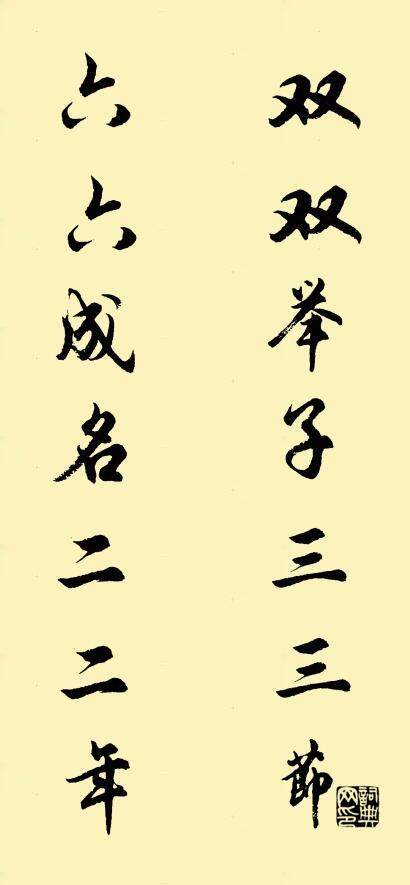 双双举子三三节
六六成名二二年
詞典网印